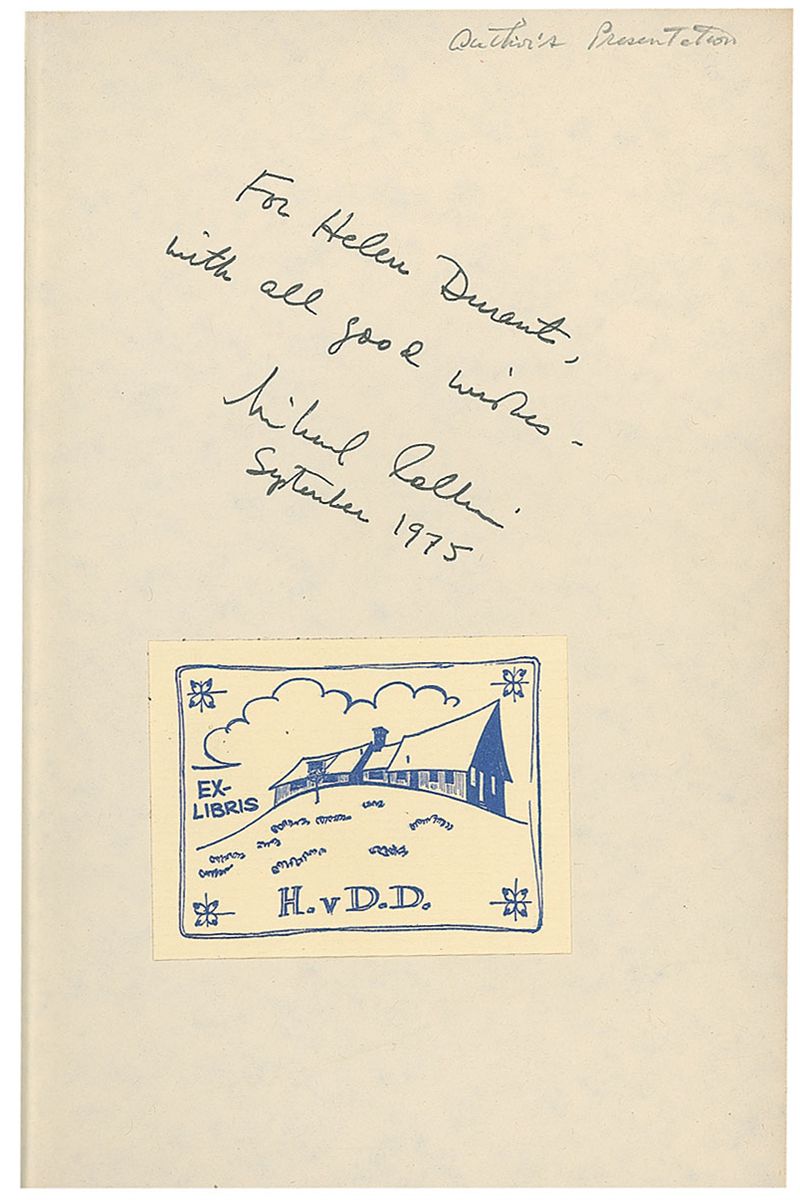 Author's Presentation
For Helen Durant,
with all good wishes -
Michael
September 1975
EX-
LIBRIS
H. v D. D.